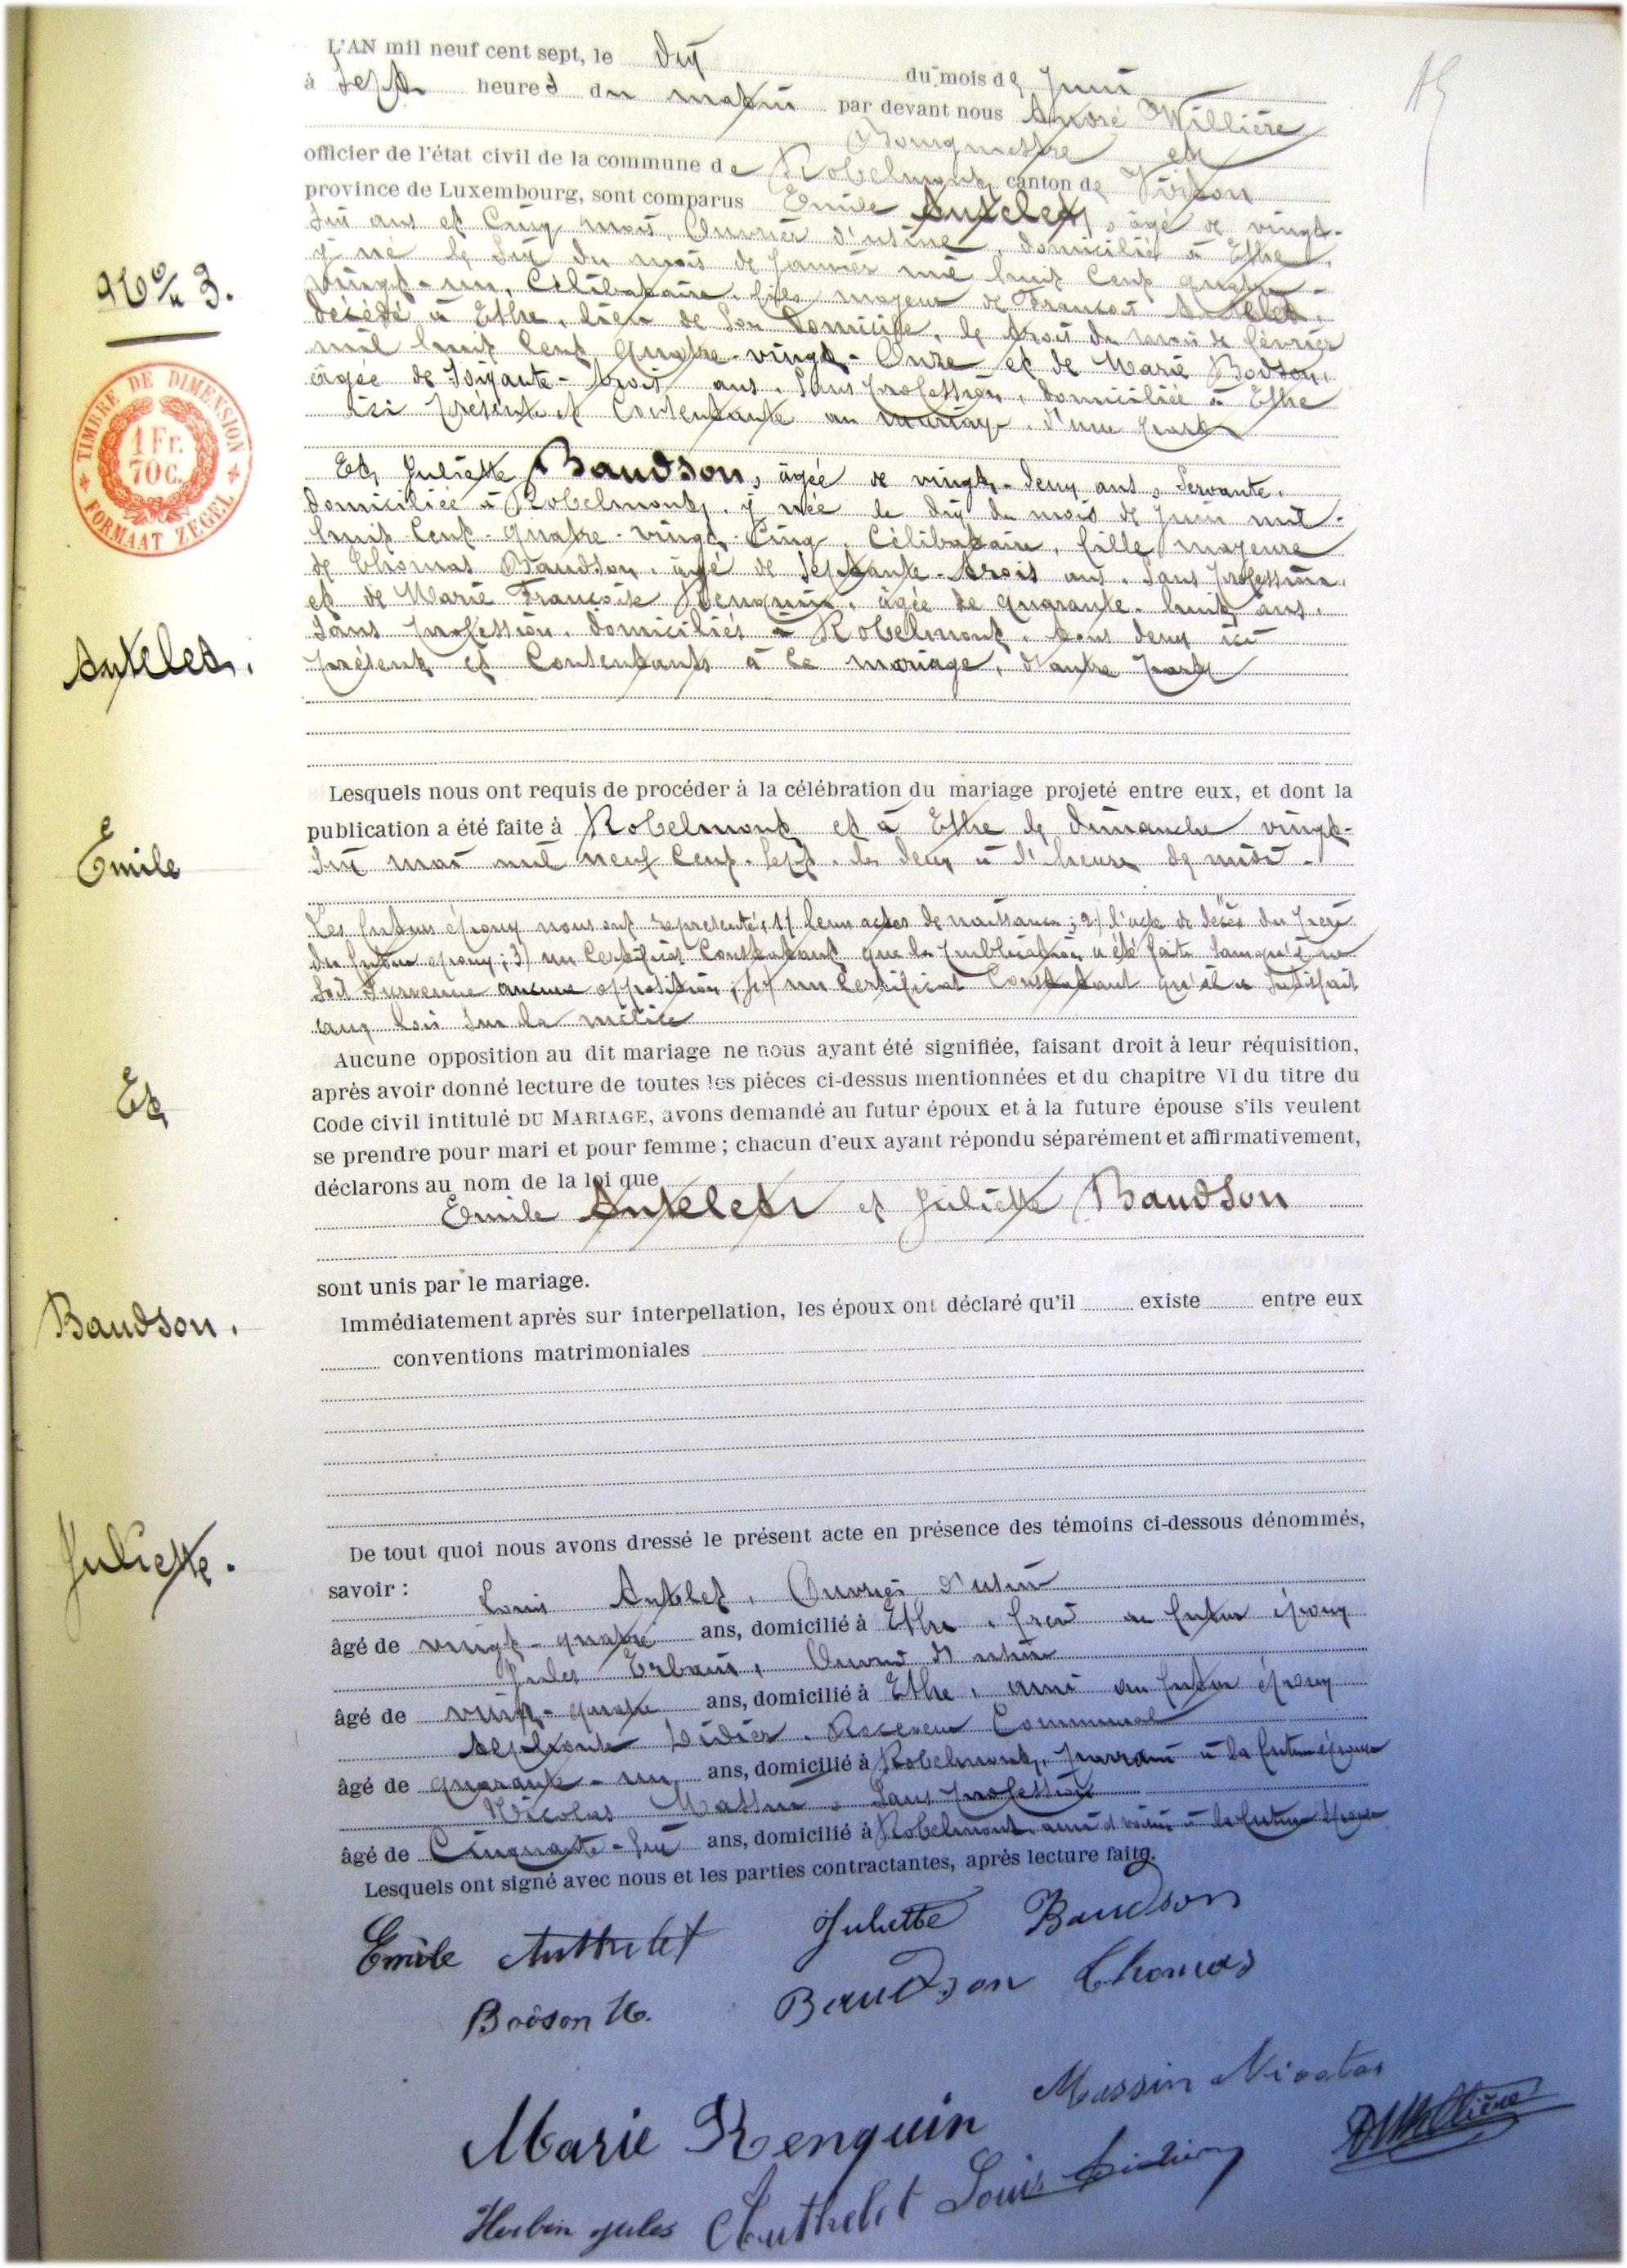 15
L'AN mil neuf cent sept, le dix du mois de Juin
à Sept heures du matin par devant nous André Willière
Bourgmestre et
officier de l'état civil de la commune de Robelmont, canton de Virton
province de Luxembourg, sont comparus Emile Antelet, âgé de vingt-
six ans et Cinq mois, Ouvrier d'usine, domicilié à Ethe,
y né le Six du mois de Janvier mil huit Cent quatre-
vingt-un, Célibataire, fils majeur de François Antelet,
décédé à Ethe, lieu de Son domicile, le trois du mois de février
mil huit Cent quatre-vingt-Onze et de Marie Bodson,
âgée de Soixante-trois ans, Sans profession, domiciliée à Ethe
ici présente et Consentante au mariage, d'une part
Et Juliette Baudson, âgée de vingt-deux ans, Servante,
domiciliée à Robelmont, y née le dix du mois de Juin mil-
huit-Cent-quatre-vingt-Cinq, Célibataire, fille majeure
de Thomas Baudson, âgé de Septante-trois ans, Sans profession,
et de Marie Françoise Renquin, âgée de quarante-huit ans,
Sans profession, domiciliés à Robelmont, tous deux ici
présents et Consentants à ce mariage, d'autre part
Lesquels nous ont requis de procéder à la célébration du mariage projeté entre eux, et dont la
publication a été faite à Robelmont et à Ethe le dimanche vingt-
Six mai mil neuf Cent-Sept, les deux à l'heure de midi.
Les futurs époux nous ont représenté, 1/ leurs actes de naissance; 2/ l'acte de décès du père
du futur époux; 3/ un Certificat Constatant que la publication a été faite Sans qu'il ne
Soit Survenue aucune opposition; 4/ un Certificat Constatant qu'il a Satisfait
aux lois Sur la milice
Aucune opposition au dit mariage ne nous ayant été signifiée, faisant droit à leur réquisition,
après avoir donné lecture de toutes les pièces ci-dessus mentionnées et du chapitre VI du titre du
Code civil intitulé DU MARIAGE, avons demandé au futur époux et à la future épouse s'ils veulent
se prendre pour mari et pour femme ; chacun d'eux ayant répondu séparément et affirmativement,
déclarons au nom de la loi que
Emile Antelet et Juliette Baudson
sont unis par le mariage.
Immédiatement après sur interpellation, les époux ont déclaré qu'il existe entre eux
conventions matrimoniales
De tout quoi nous avons dressé le présent acte en présence des témoins ci-dessous dénommés,
savoir :
Louis Antelet, Ouvrier d'usine
âgé de vingt-quatre ans, domicilié à Ethe, frère au futur époux
Jules Erbain, Ouvrier d'usine
âgé de vingt-quatre ans, domicilié à Ethe, ami au futur époux
Alphonse Didier, Receveur Communal
âgé de quarante-un ans, domicilié à Robelmont, parrain à la future épouse
Nicolas Massin, Sans profession
âgé de Cinquante-Six ans, domicilié à Robelmont, ami et voisin à la future épouse
Lesquels ont signé avec nous et les parties contractantes, après lecture faite.
Emile Anthelet Juliette Baudson
Bodson M. Baudson Thomas
Marie Renquin Massin Nicolas
Herbin Jules Anthelet Louis Didier AWillière
No 3.
TIMBRE DE DIMENSION
1 Fr.
70 C.
FORMAAT ZEGEL
Antelet.
Emile
Et
Baudson.
Juliette.